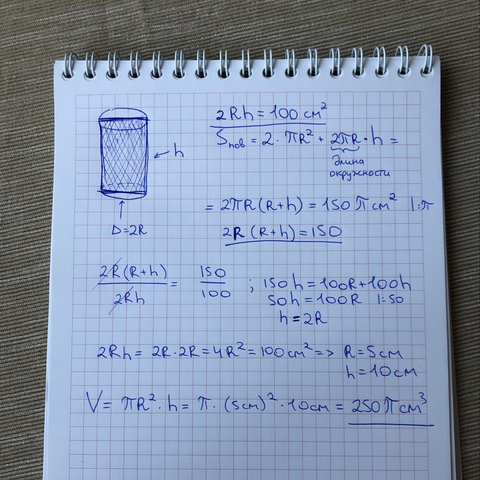 2Rh = 100 см²
Sпов = 2 · πR² + 2πR · h =
длина
окружности
h
= 2πR(R+h) = 150π см² |:π
D=2R
2R(R+h) = 150
2R(R+h)/2Rh = 150/100 ; 150h = 100R+100h
50h = 100R |:50
h = 2R
2Rh = 2R·2R = 4R² = 100 см² => R = 5 см
h = 10 см
V = πR² · h = π · (5 см)² · 10 см = 250π см³